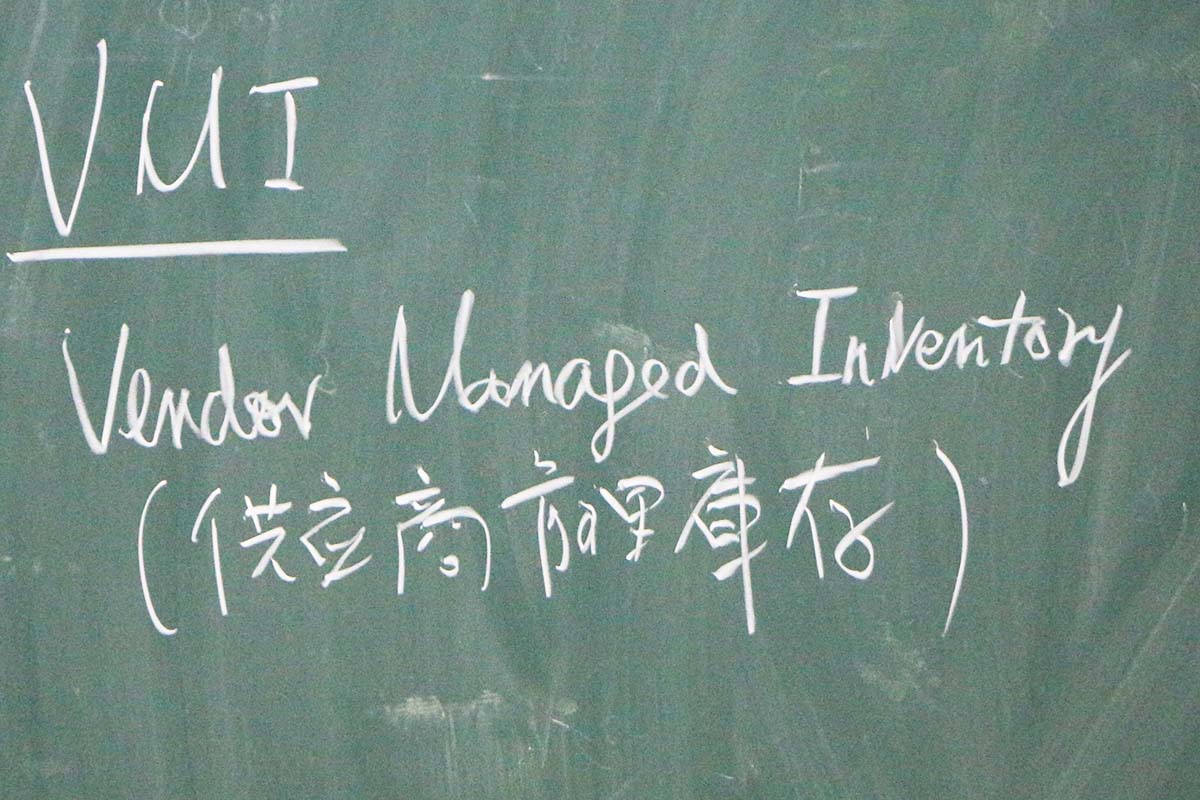 VMI
Vendor Managed Inventory
(供应商管理庫存)